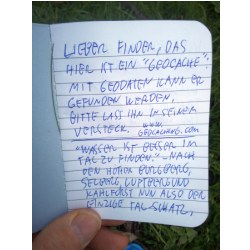 LIEBER FINDER, DAS
HIER IST EIN "GEOCACHE".
MIT GEODATEN KANN ER
GEFUNDEN WERDEN.
BITTE LASS IHN IN SEINEM
VERSTECK. www.
GEOCACHING.COM
"WASSER IST BESSER IM
TAL ZU FINDEN." - NACH
DEN HÖHEN BURGBERG,
SELBERG, LUFTBERG UND
KAHLFORST NUN ALSO DER
EINZIGE TAL-SCHATZ.